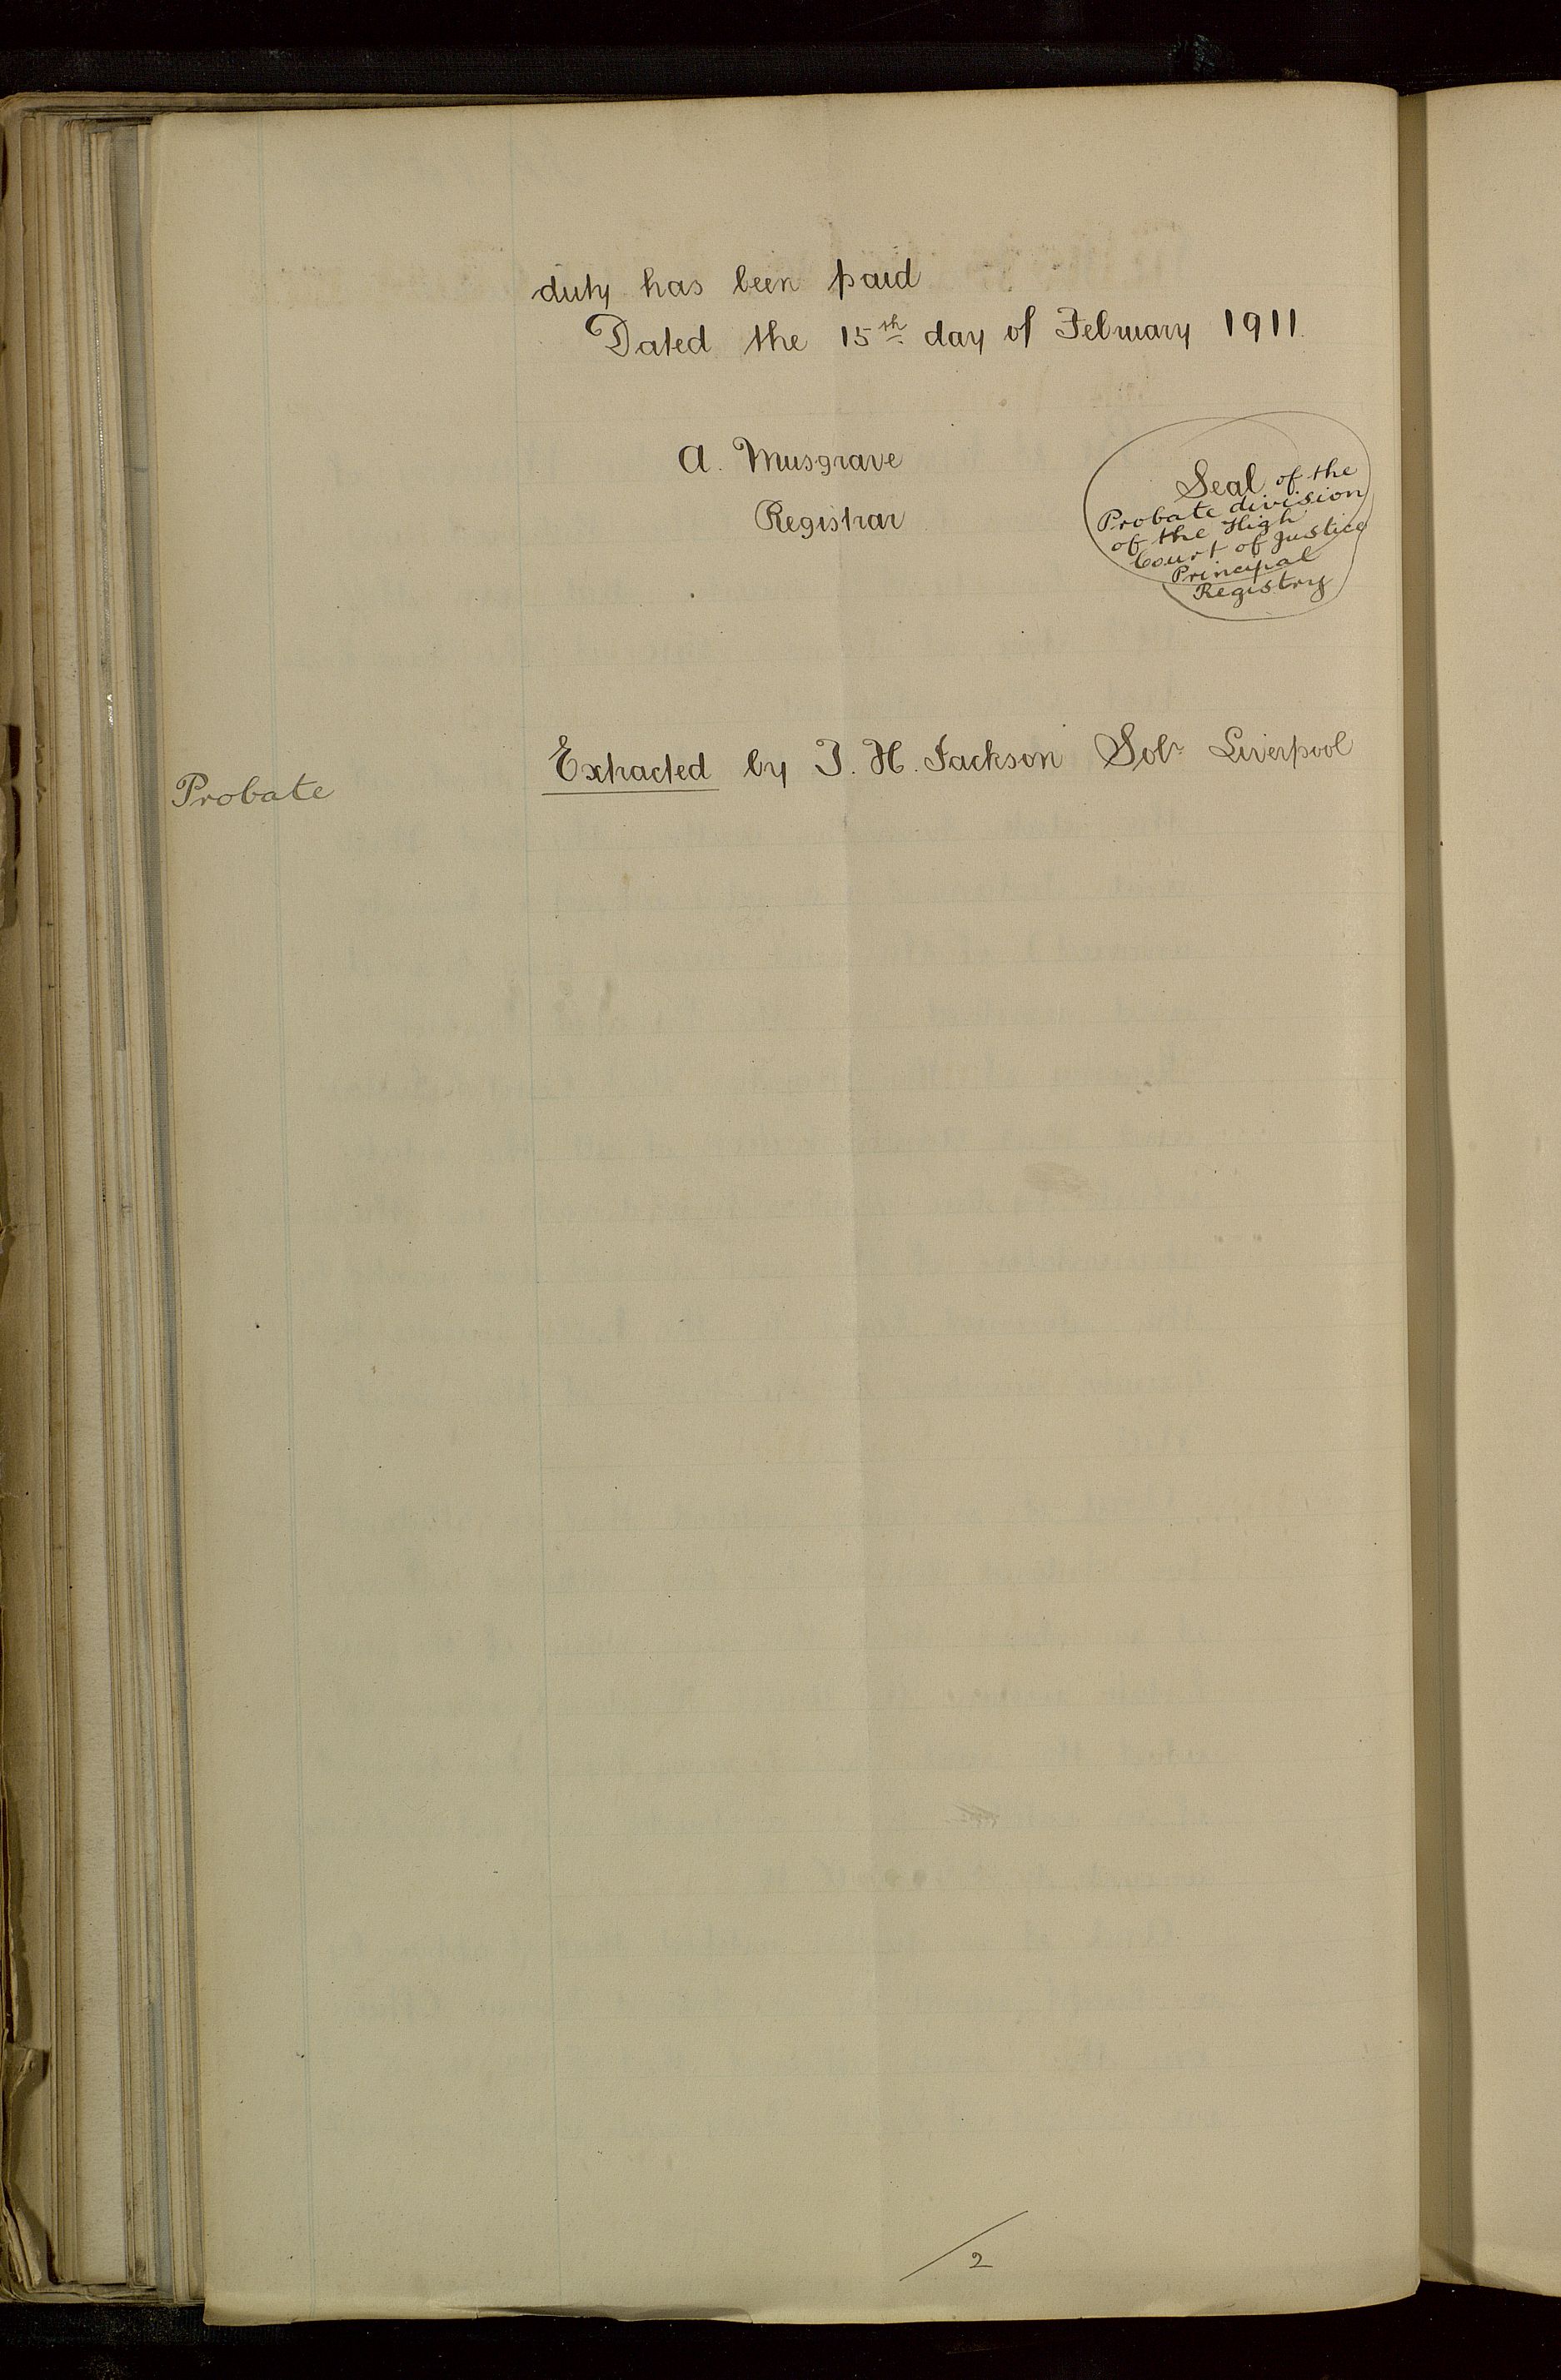 duty has been paid
Dated the 15th day of February 1911.
A. Musgrave
Registrar
Seal of the
Probate division
of the High
Court of Justice
Principal
Registry
Extracted by T. H. Jackson Solr Liverpool
Probate
2